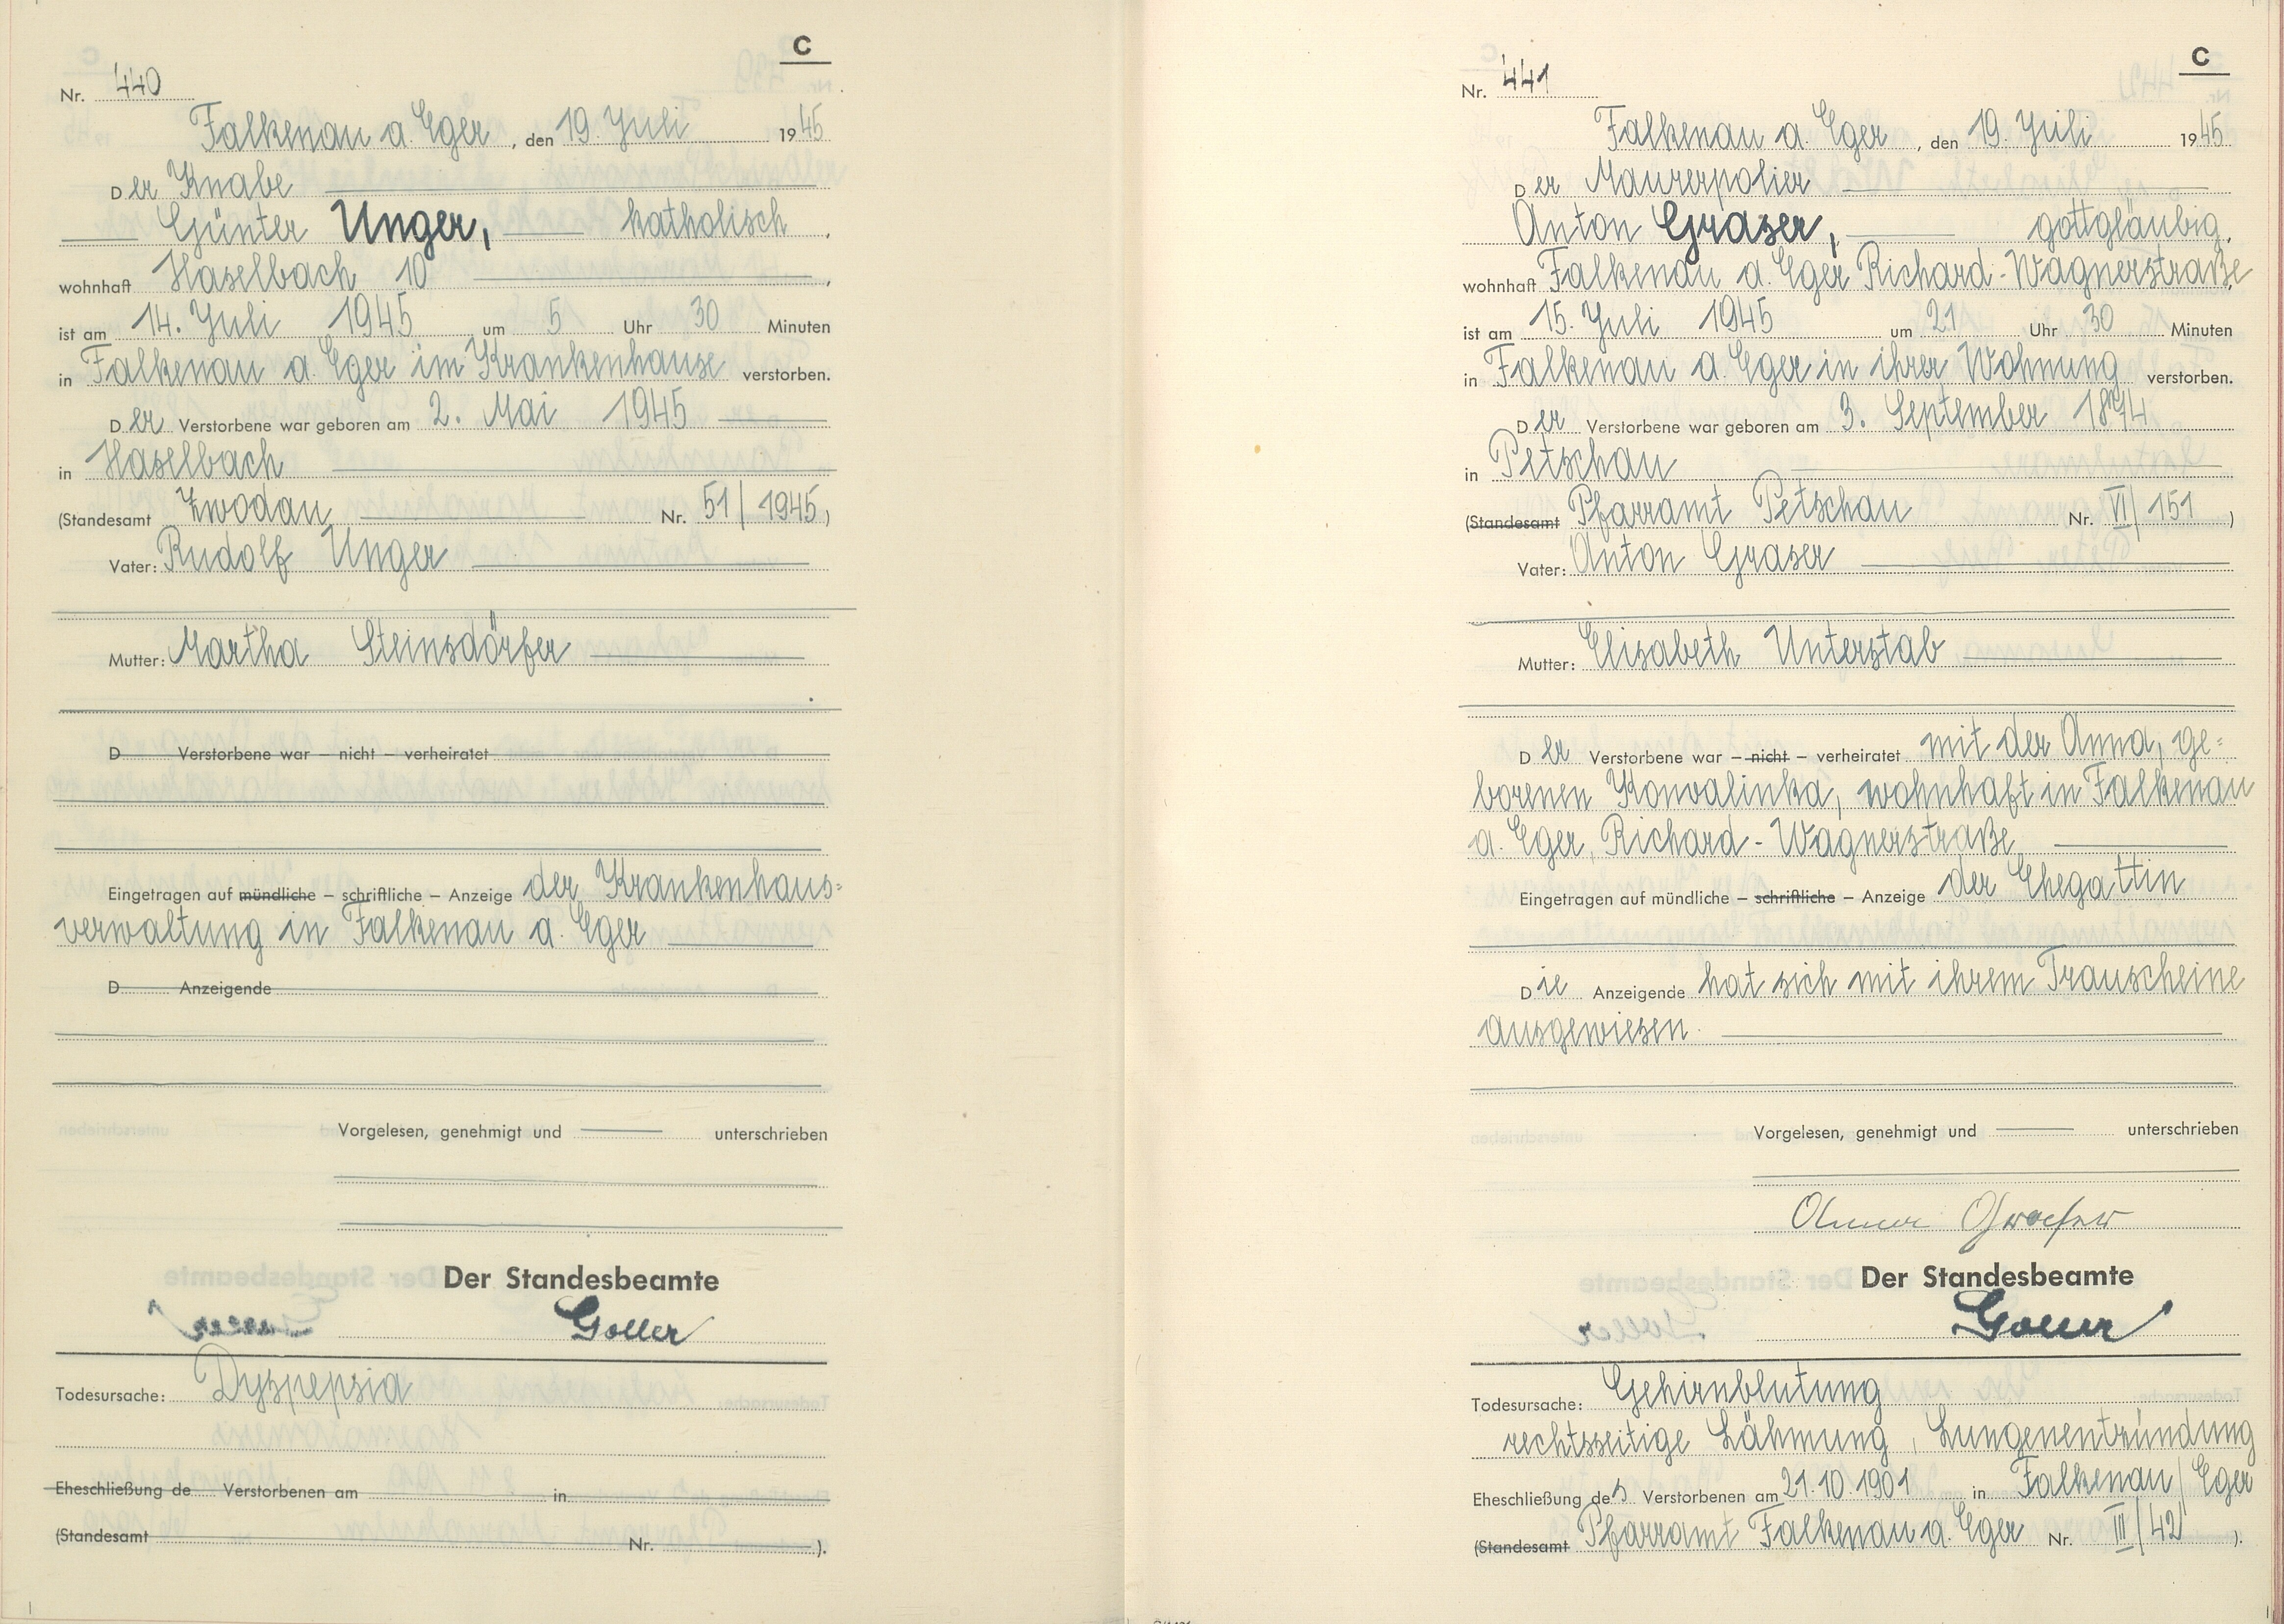 C
Nr. 440
Falkenau a. Eger, den 19. Juli 1945
Der Knabe
Günter Unger, katholisch,
wohnhaft Haselbach 10,
ist am 14. Juli 1945 um 5 Uhr 30 Minuten
in Falkenau a. Eger im Krankenhause verstorben.
Der Verstorbene war geboren am 2. Mai 1945
in Haselbach
(Standesamt Zwodau Nr. 51/1945)
Vater: Rudolf Unger
Mutter: Martha Steinsdörfer
D Verstorbene war – nicht – verheiratet
Eingetragen auf mündliche – schriftliche – Anzeige der Krankenhaus=
verwaltung in Falkenau a. Eger
D Anzeigende
Vorgelesen, genehmigt und unterschrieben
Der Standesbeamte
Goller
Todesursache: Dyspepsia
Eheschließung de Verstorbenen am in
(Standesamt Nr. ).
C
Nr. 441
Falkenau a. Eger, den 19. Juli 1945
Der Maurerpolier
Anton Graser, gottgläubig,
wohnhaft Falkenau a. Eger Richard-Wagnerstraße,
ist am 15. Juli 1945 um 21 Uhr 30 Minuten
in Falkenau a. Eger in ihrer Wohnung verstorben.
Der Verstorbene war geboren am 3. September 1874
in Petschau
(Standesamt Pfarramt Petschau Nr. VI/151)
Vater: Anton Graser
Mutter: Elisabeth Unterstab
Der Verstorbene war – nicht – verheiratet mit der Anna, ge=
borenen Konvalinka, wohnhaft in Falkenau
a. Eger, Richard-Wagnerstraße
Eingetragen auf mündliche – schriftliche – Anzeige der Ehegattin
Die Anzeigende hat sich mit ihrem Trauscheine
ausgewiesen.
Vorgelesen, genehmigt und unterschrieben
Anna Graser
Der Standesbeamte
Goller
Todesursache: Gehirnblutung
rechtsseitige Lähmung, Lungenentzündung
Eheschließung des Verstorbenen am 21.10.1901 in Falkenau/Eger
(Standesamt Pfarramt Falkenau a. Eger Nr. III/42).